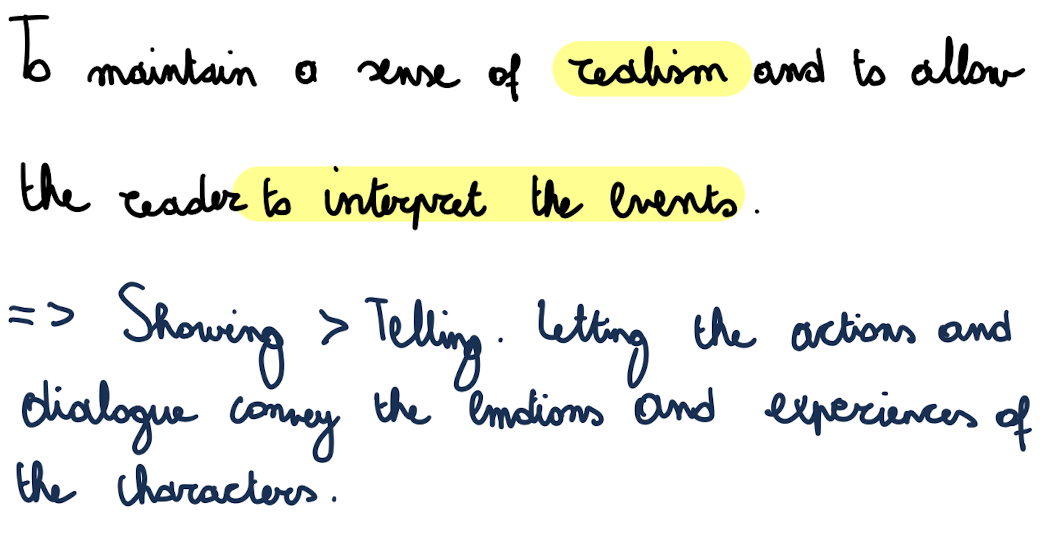 To maintain a sense of realism and to allow
the reader to interpret the events.
=> Showing > Telling. Letting the actions and
dialogue convey the emotions and experiences of
the characters.